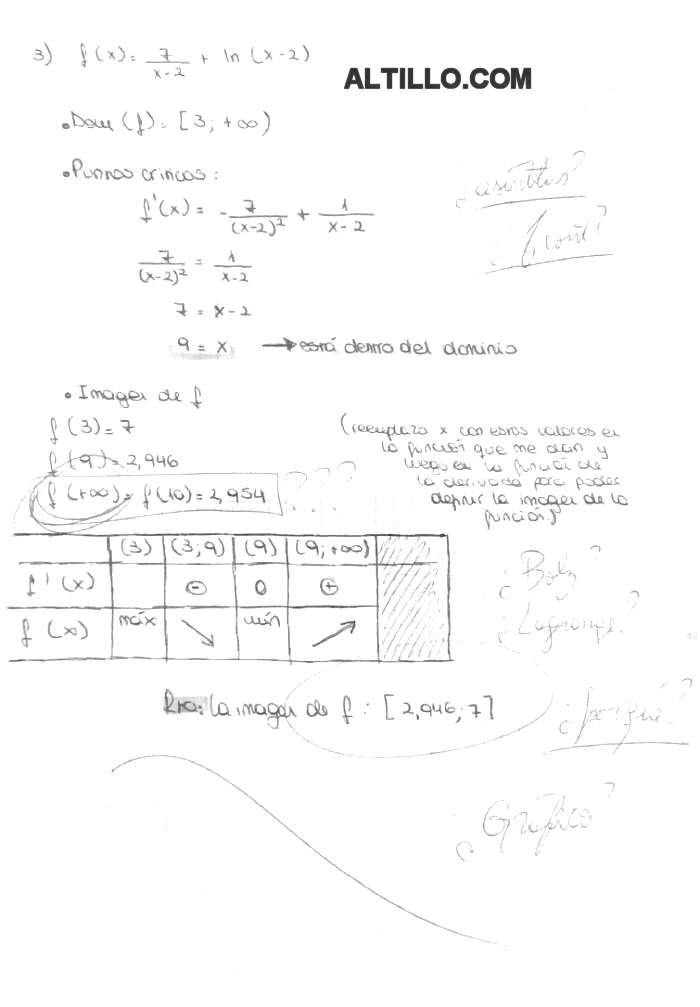 3) f(x) = 7/(x-2) + ln(x-2)
ALTILLO.COM
• Dom (f) = [3; +∞)
• Puntos criticos:
¿asíntotas?
f'(x) = -7/(x-2)² + 1/(x-2)
¿f cont?
7/(x-2)² = 1/(x-2)
7 = x-2
9 = x → está dentro del dominio
• Imagen de f
f(3) = 7
f(9) = 2,946
f(+∞) = f(10) = 2,954
???
(reemplazo x con estos valores en
la función que me dan y
luego en la función de
la derivada para poder
definir la imagen de la
función)
(3) (3;9) (9) (9;+∞)
f'(x) ⊖ 0 ⊕
f(x) máx ↘ mín ↗
¿Bolz?
¿Lagrange?
Rta: la imagen de f: [2,946; 7]
¿por qué?
¿Gráfico?